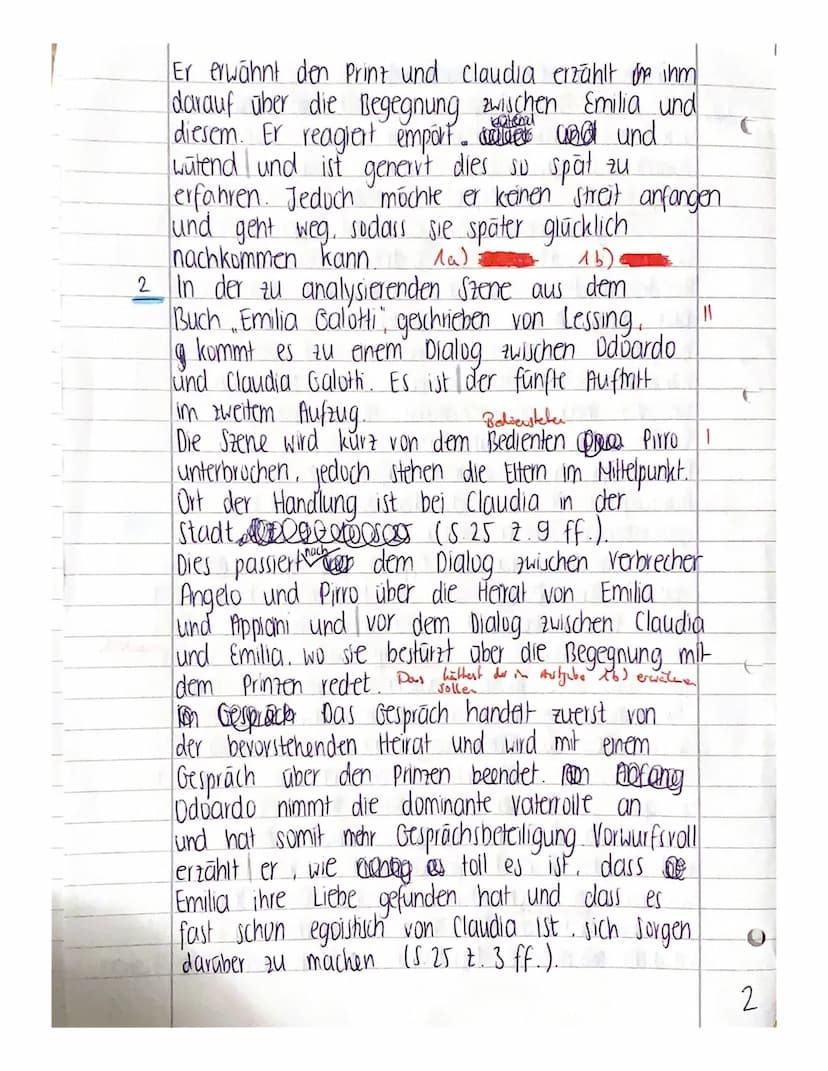 Er erwähnt den Prinz und Claudia erzählt ihm
darauf über die Begegnung zwischen Emilia und
diesem. Er reagiert empört. und
wütend und ist genervt dies so spät zu
erfahren. Jedoch möchte er keinen Streit anfangen
und geht weg, sodass sie später glücklich
nachkommen kann. 1a) 1b)
2 In der zu analysierenden Szene aus dem
Buch „Emilia Galotti", geschrieben von Lessing, ||
kommt es zu einem Dialog zwischen Odoardo
und Claudia Galotti. Es ist der fünfte Auftritt
im zweitem Aufzug.
Bediensteter
Die Szene wird kurz von dem Bedienten Pirro |
unterbrochen, jedoch stehen die Eltern im Mittelpunkt.
Ort der Handlung ist bei Claudia in der
Stadt (S.25 Z.9 ff.).
Dies passiert nach dem Dialog zwischen Verbrecher
Angelo und Pirro über die Heirat von Emilia
und Appiani und vor dem Dialog zwischen Claudia
und Emilia, wo sie bestürzt über die Begegnung mit
dem Prinzen redet. Das hättest du in Aufgabe 1b) erwähnen
sollen
Gespräch Das Gespräch handelt zuerst von
der bevorstehenden Heirat und wird mit einem
Gespräch über den Prinzen beendet. Anfang
Odoardo nimmt die dominante Vaterrolle an
und hat somit mehr Gesprächsbeteiligung. Vorwurfsvoll
erzählt er, wie toll es ist, dass
Emilia ihre Liebe gefunden hat und dass es
fast schon egoistisch von Claudia ist, sich Sorgen
darüber zu machen (S.25 Z.3 ff.).
2